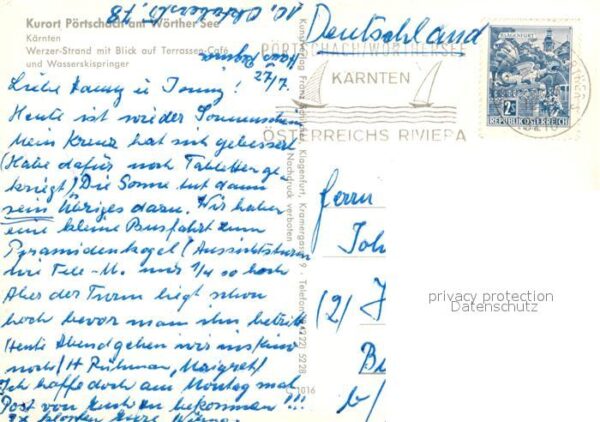 Kurort Pörtschach am Wörther See
Kärnten
Werzer-Strand mit Blick auf Terrassen-Café
und Wasserskispringer
Haus
27/7.
Liebe u !
Heute ist wieder Sonnenschein
Mein Kreuz hat sich gebessert
(Habe dafür noch Tabletten ge-
kriegt) Die Sonne tut dann
sein Übriges dazu. Wir haben
eine kleine Busfahrt zum
Pyramidenkogel (Aussichtsturm
wie Tele-M. nur 1/4 so hoch
Aber der Turm liegt schon
hoch bevor man ihn betritt
Heute Abend gehen wir ins Kino
noch (H Rühman, Maigret)
Ich hoffe doch am Montag mal
Post von Euch zu bekommen !!!
Deutschland
PÖRTSCHACH/WÖRTHERSEE
KÄRNTEN
ÖSTERREICHS RIVIERA
KLAGENFURT
2S
REPUBLIK ÖSTERREICH
Kunstverlag Franz Schilcher, Klagenfurt, Kramergasse 9 - Telefon (04222) 5228
Nachdruck verboten
1016
Herrn
Joh
(2) J
B
b/
privacy protection
Datenschutz